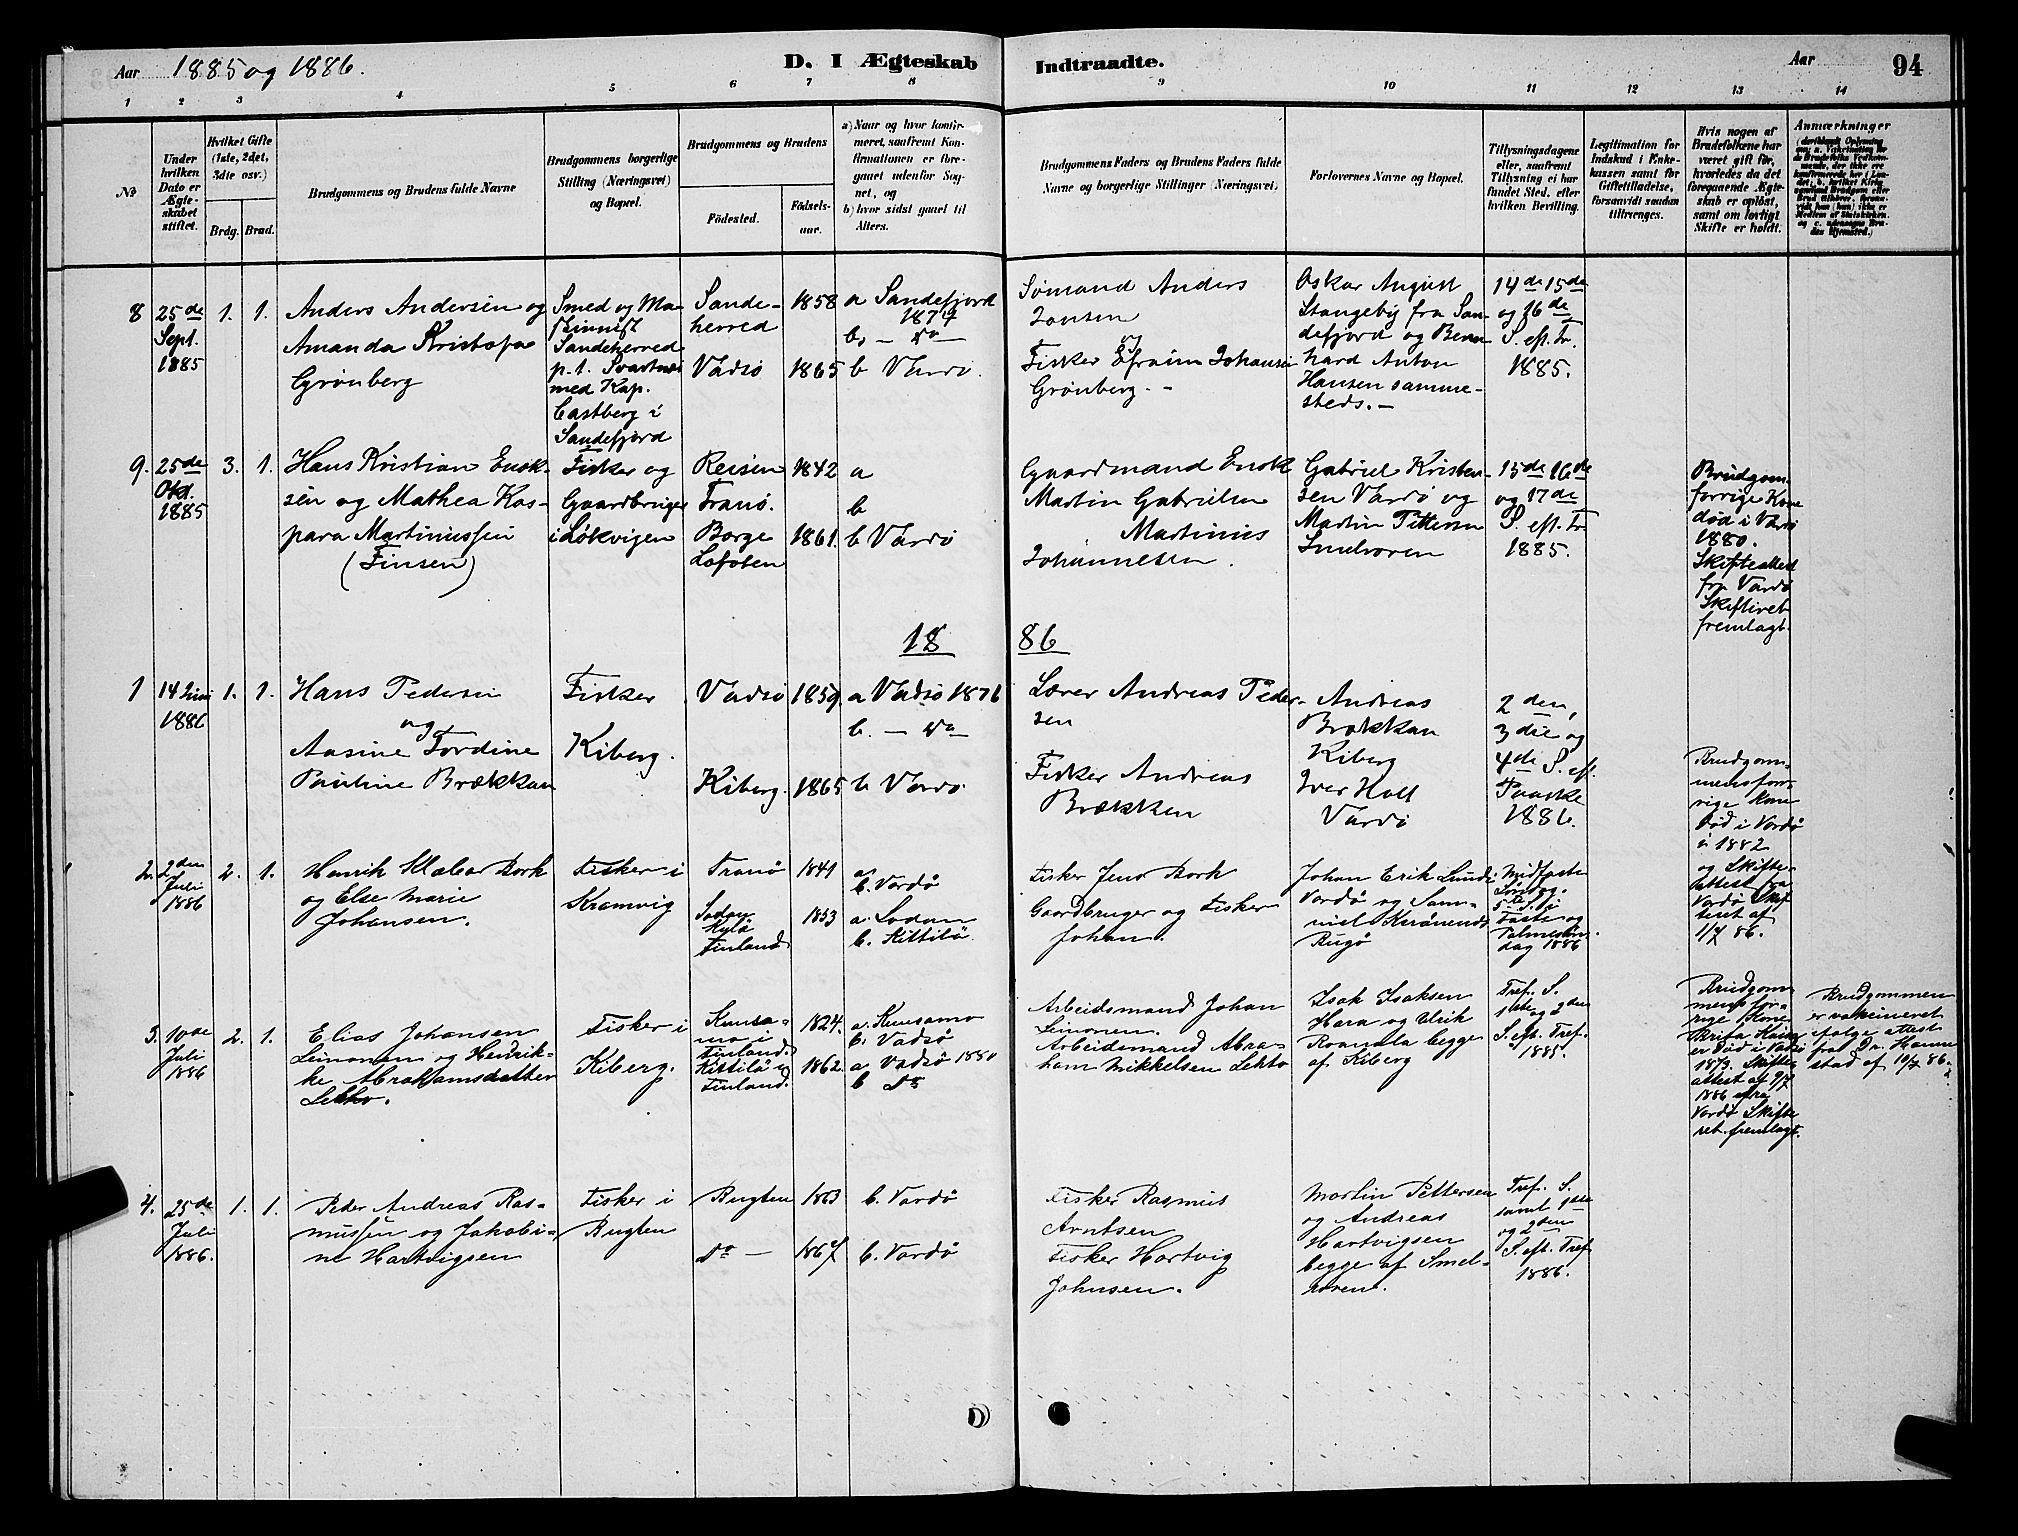 Aar 1885 og 1886.
D. I Ægteskab Indtraadte.
Aar
94
1 2 3 4 5 6 7 8 9 10 11 12 13 14
No
Under hvilken Dato er Ægteskabet stiftet.
Hvilket Gifte (1ste, 2det, 3die osv.)
Brdg. Brud.
Brudgommens og Brudens fulde Navne
Brudgommens borgerlige Stilling (Næringsvei) og Bopæl.
Brudgommens og Brudens
Fødested.
Fødsels-aar.
a) Naar og hvor konfirmeret, saafremt Konfirmationen er foregaaet udenfor Sognet, og
b) hvor sidst gaaet til Alters.
Brudgommens Faders og Brudens Faders fulde Navne og borgerlige Stillinger (Næringsvei)
Forlovernes Navne og Bopæl.
Tillysningsdagene eller, saafremt Tillysning ei har fundet Sted, efter hvilken Bevilling.
Legitimation for Indskud i Enkekassen samt for Giftetilladelse, forsaavidt saadan tiltrænges.
Hvis nogen af Brudefolkene har været gift før, hvorledes da det foregaaende Ægteskab er opløst, samt om lovligt Skifte er holdt.
Anmærkninger
8
25de
Sept.
1885
1. 1.
Anders Andersen og
Amanda Kristofa
Grönberg
Smed og Ma-
skinnist
Sandeherred
p. t. Svartnæs
med Kap.
Castberg i
Sandefjord
Sande-
herred
Vadsö
1858
1865
a Sandefjord
1874
b. — do —
b Vardö.
Sömand Anders
Jonsen
Fisker Efraim Johansen
Grönberg. -
Oskar August
Stangeby fra San-
defjord og Bern-
hard Anton
Hansen samme-
steds. —
14de 15de
og 16de
S. eft. Tr.
1885.
9.
25de
Okt.
1885
3. 1.
Hans Kristian Enok-
sen og Mathea Kas-
para Martinussen
(Finsen)
Fisker og
Gaardbruger
i Lökvigen
Reisen
Tranö.
Borge
Lofoten
1842
1861.
a
b
b Vardö
Gaardmand Enok
Martin Gabrielsen
Martinus
Johannesen.
Gabriel Kristen-
sen Vardö og
Martin Pettersen
Smelroren
15de 16de
og 17de
S. eft. Tr.
1885.
Brudgom.
forrige Kone
död i Vardö
1880.
Skifteattest
fra Vardö
Skifteret
fremlagt.
18 86
1
14 Juni
1886
1. 1.
Hans Pedersen
og
Aasine Tordine
Pauline Brækkan
Fisker
Kiberg.
Vadsö
Kiberg.
1859.
1865
a Vadsö 1876
b. — do
b Vardö.
Lærer Andreas Peder-
sen
Fisker Andreas
Brækken
Andreas
Brækkan
Kiberg
Iver Holt
Vardö
2den,
3die og
4de S. ef.
Paaske
1886.
2.
2den
Juli
1886
2. 1.
Henrik Klæboe Bork
og Else Marie
Johansen.
Fisker i
Kramvig
Tranö
Sodan-
Kylä
Finland
1841
1853
a.
b. Vardö
a. Sodan
b. Kittilä
Fisker Jens Bork
Gaardbruger og Fisker
Johan.
Johan Erik Lund i
Vardö og Sam-
uel
Midfaste
Söndag.
5te S. i
Faste og
Palmesön-
dag 1886
Brudgom-
mens for-
rige Kone
död i Vardö
i 1882
og Skifte-
attest fra
Vardö Skif-
teret af
1/7 86.
3.
10de
Juli
1886
2. 1.
Elias Johansen
Leinonen og Hendrik-
ke Abrahamsdatter
Lehto.
Fisker i
Kiberg.
Kuusa-
mo i
Finland
Kittilä i
Finland.
1824.
1862.
a. Kuusamo
b. Vadsö
a. Vadsö 1880
b do
Arbeidsmand Johan
Leinonen.
Arbeidsmand Abra-
ham Mikkelsen Lehto
Isak Isaksen
Hara og Ulrik
begge
af Kiberg
Tref. S.
1ste og 2den
S. eft. Tref.
1885.
Brudgom-
mens for-
rige Kone
Brita Kaisa
er död i Vadsö
1873. Skifte-
attest af 9/7
1886 fra
Vardö Skifte
ret fremlagt.
Brudgommen
er vaccineret
ifölge attest
fra Dr. Hamm-
stad af 10/7 86.
4.
25de
Juli
1886.
1. 1.
Peder Andreas Ras-
mussen og Jakobi-
ne Hartvigsen
Fisker i
Bugten
Bugten
do —
1863
1867
b. Vardö
b. Vardö
Fisker Rasmus
Arntsen
Fisker Hartvig
Johnsen.
Martin Pettersen
og Andreas
Hartvigsen
begge af Smel-
roren.
Tref. S.
samt 1ste
og 2den
S. eft. Tref
1886.